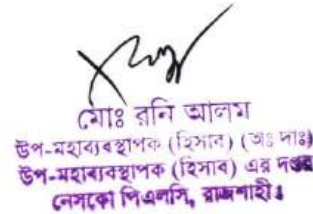 মোঃ রনি আলম
উপ-মহাব্যবস্থাপক (হিসাব) (অঃ দাঃ)
উপ-মহাব্যবস্থাপক (হিসাব) এর দপ্তর
নেসকো পিএলসি, রাজশাহী।